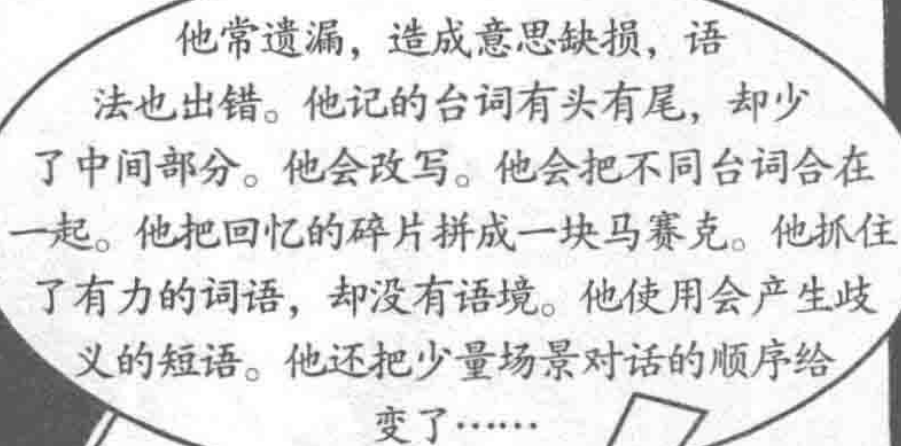 他常遗漏，造成意思缺损，语
法也出错。他记的台词有头有尾，却少
了中间部分。他会改写。他会把不同台词合在
一起。他把回忆的碎片拼成一块马赛克。他抓住
了有力的词语，却没有语境。他使用会产生歧
义的短语。他还把少量场景对话的顺序给
变了……